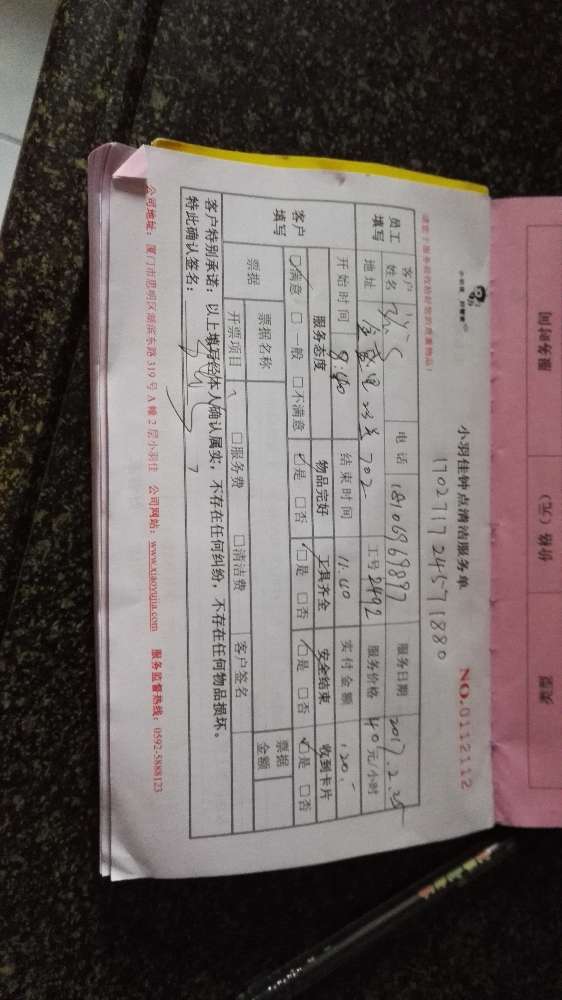 小羽佳钟点清洁服务单
NO.0112112
17027172457 1880
请您于服务前收拾好您的贵重物品！
员工填写 客户姓名 电话 18106969897 服务日期 2017.2.25
地址 702 工号 2492 服务价格 40元/小时
开始时间 8:40 结束时间 11:40 实付金额 120.-
客户填写 服务态度 物品完好 工具齐全 安全结束 收到卡片
☑满意 □一般 □不满意 ☑是 □否 ☑是 □否 ☑是 □否 ☑是 □否
票据 票据名称 客户签名 票据金额
开票项目 □服务费 □清洁费
客户特别承诺：以上填写经本人确认属实，不存在任何纠纷，不存在任何物品损坏。
特此确认签名：
公司地址：厦门市思明区湖滨东路319号A幢2层小羽佳 公司网站：www.xiaoyujia.com 服务监督热线：0592-5888123
服务时间
价格（元）